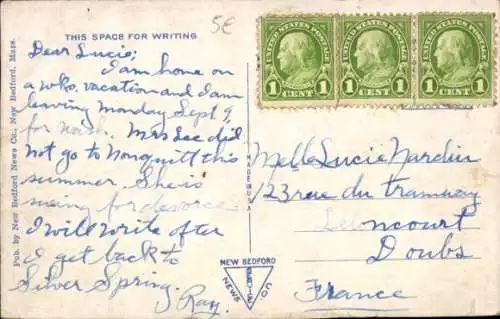 THIS SPACE FOR WRITING
5€
Dear Lucie;
I am home on
a wks. vacation and I am
leaving Monday Sept 9,
for Mrs Lee did
not go to Nonquitt this
summer. She is
suing for devorce
I will write after
I get back to
Silver Spring.
Ray.
Pub. by New Bedford News Co., New Bedford, Mass.
MADE IN USA
NEW BEDFORD
NEWS
SERVICE
CO.
UNITED STATES POSTAGE
FRANKLIN
1 CENT 1
UNITED STATES POSTAGE
FRANKLIN
1 CENT 1
UNITED STATES POSTAGE
FRANKLIN
1 CENT 1
Melle Lucie Nardin
123 rue du tramway
Doubs
France